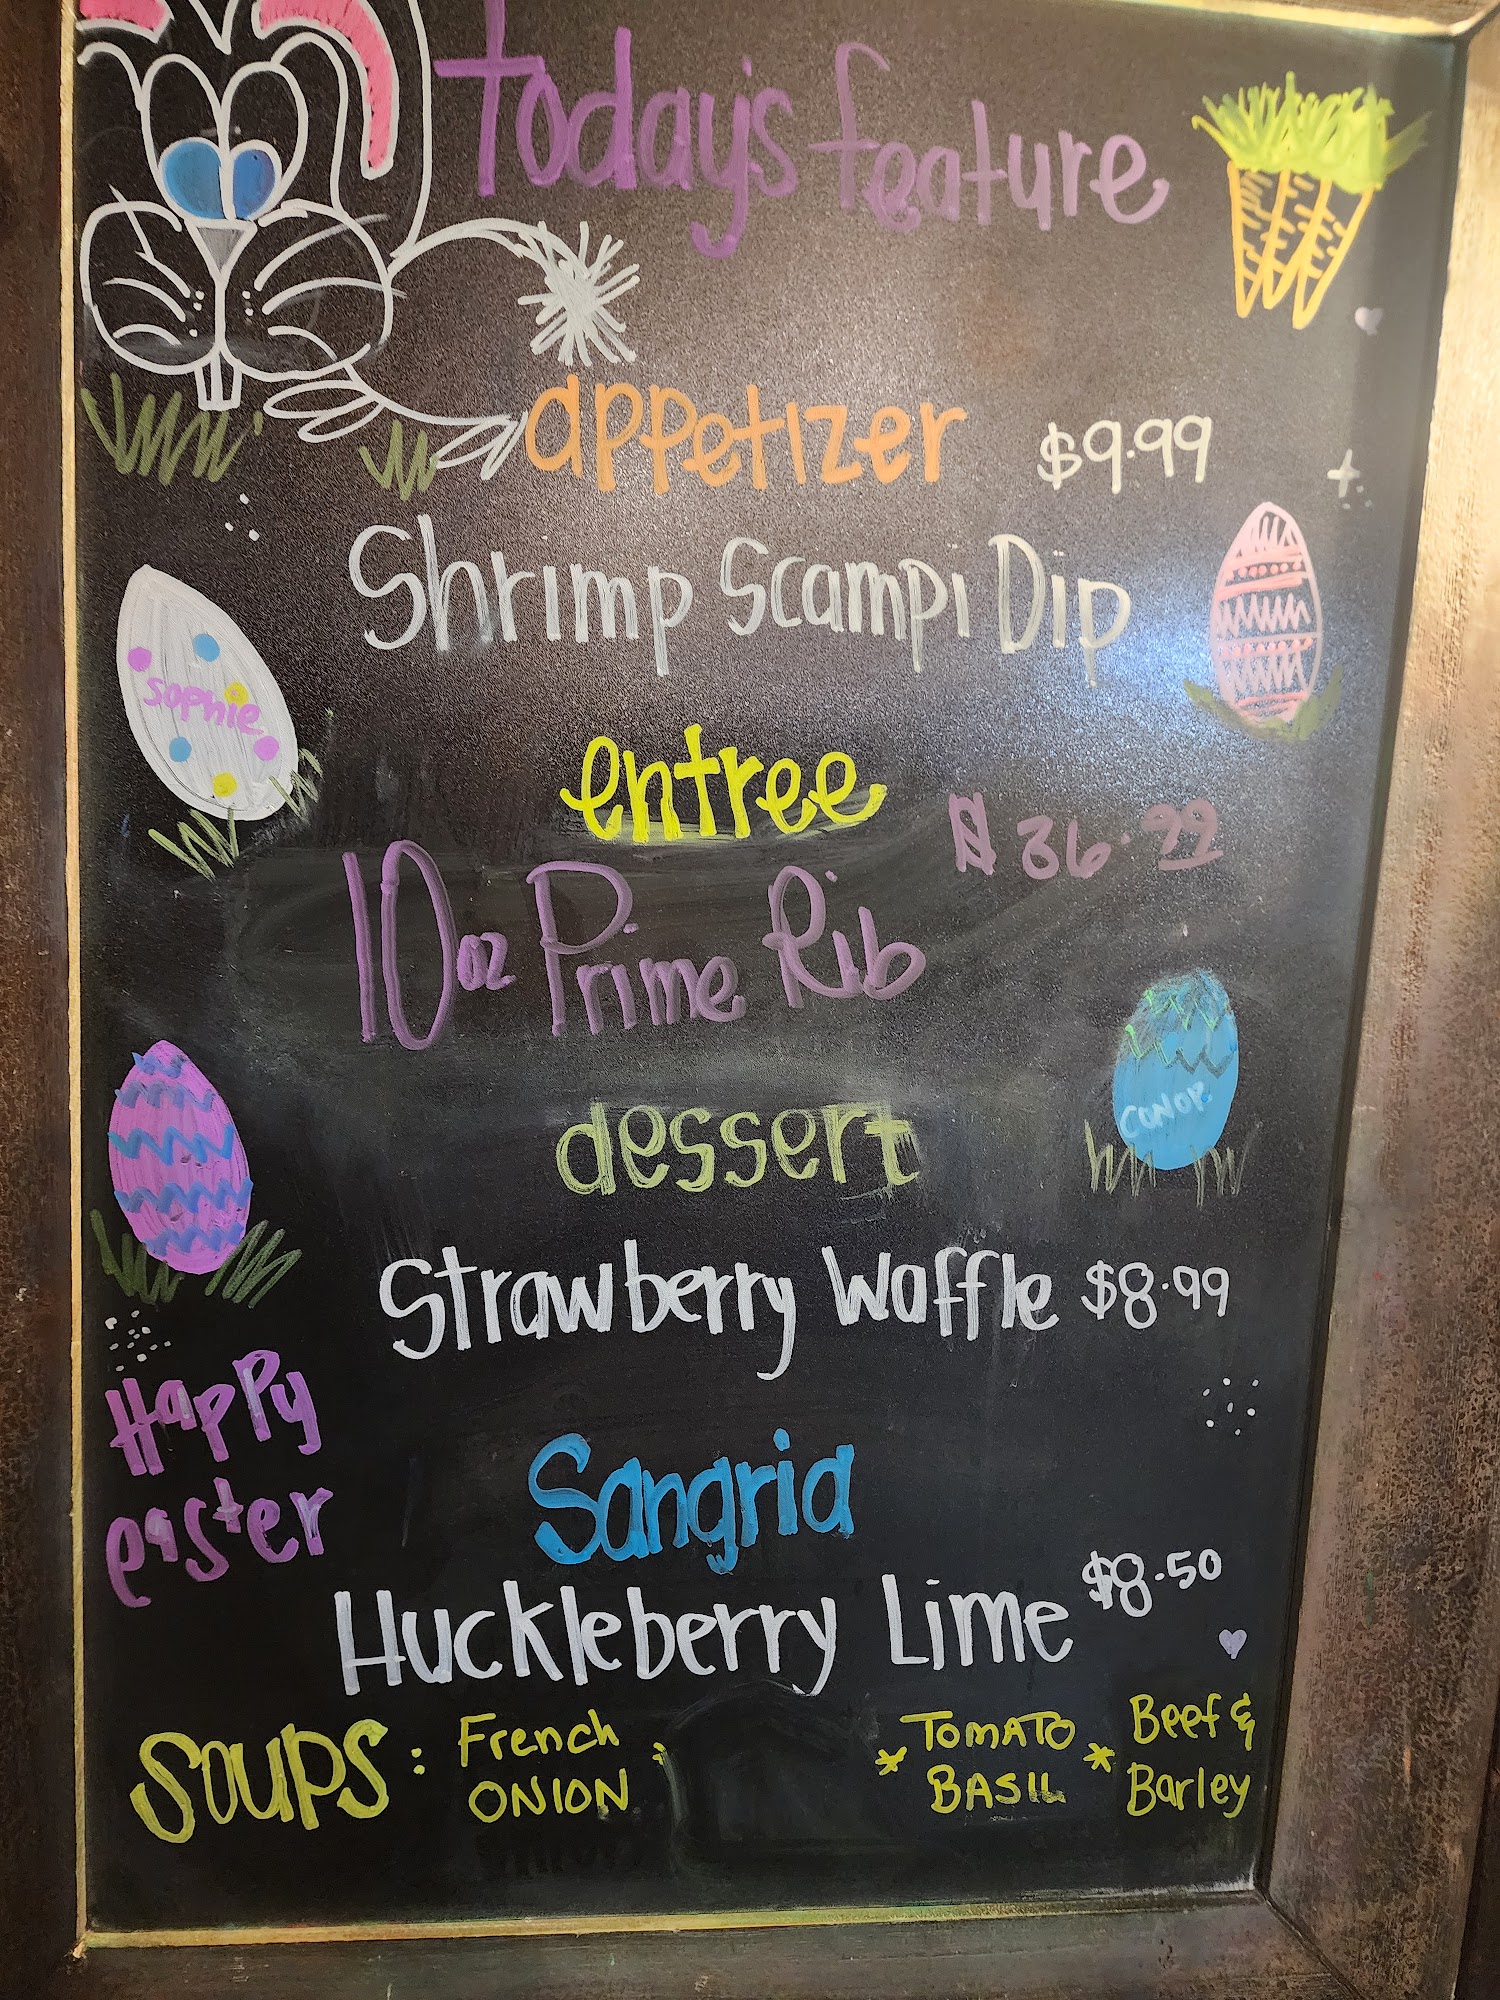 Today's feature
appetizer $9.99
Shrimp Scampi Dip
Sophie
entree $36.99
10oz Prime Rib
Conor
dessert
Strawberry Waffle $8.99
Happy
easter
Sangria
Huckleberry Lime $8.50
SOUPS: French * TOMATO * Beef &
ONION BASIL Barley